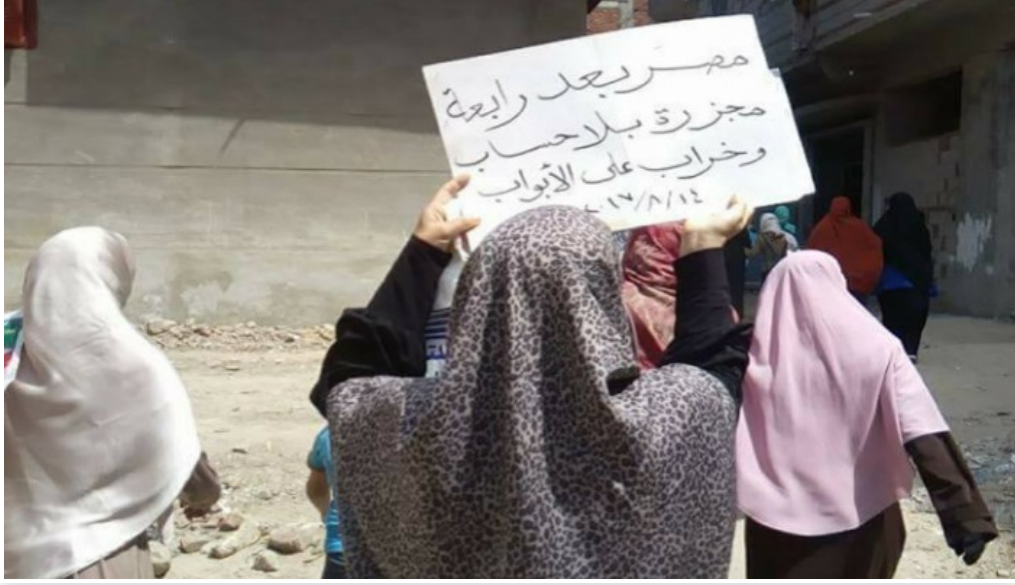 مصر بعد رابعة
مجزرة بلا حساب
وخراب على الأبواب
٢٠١٧/٨/١٤